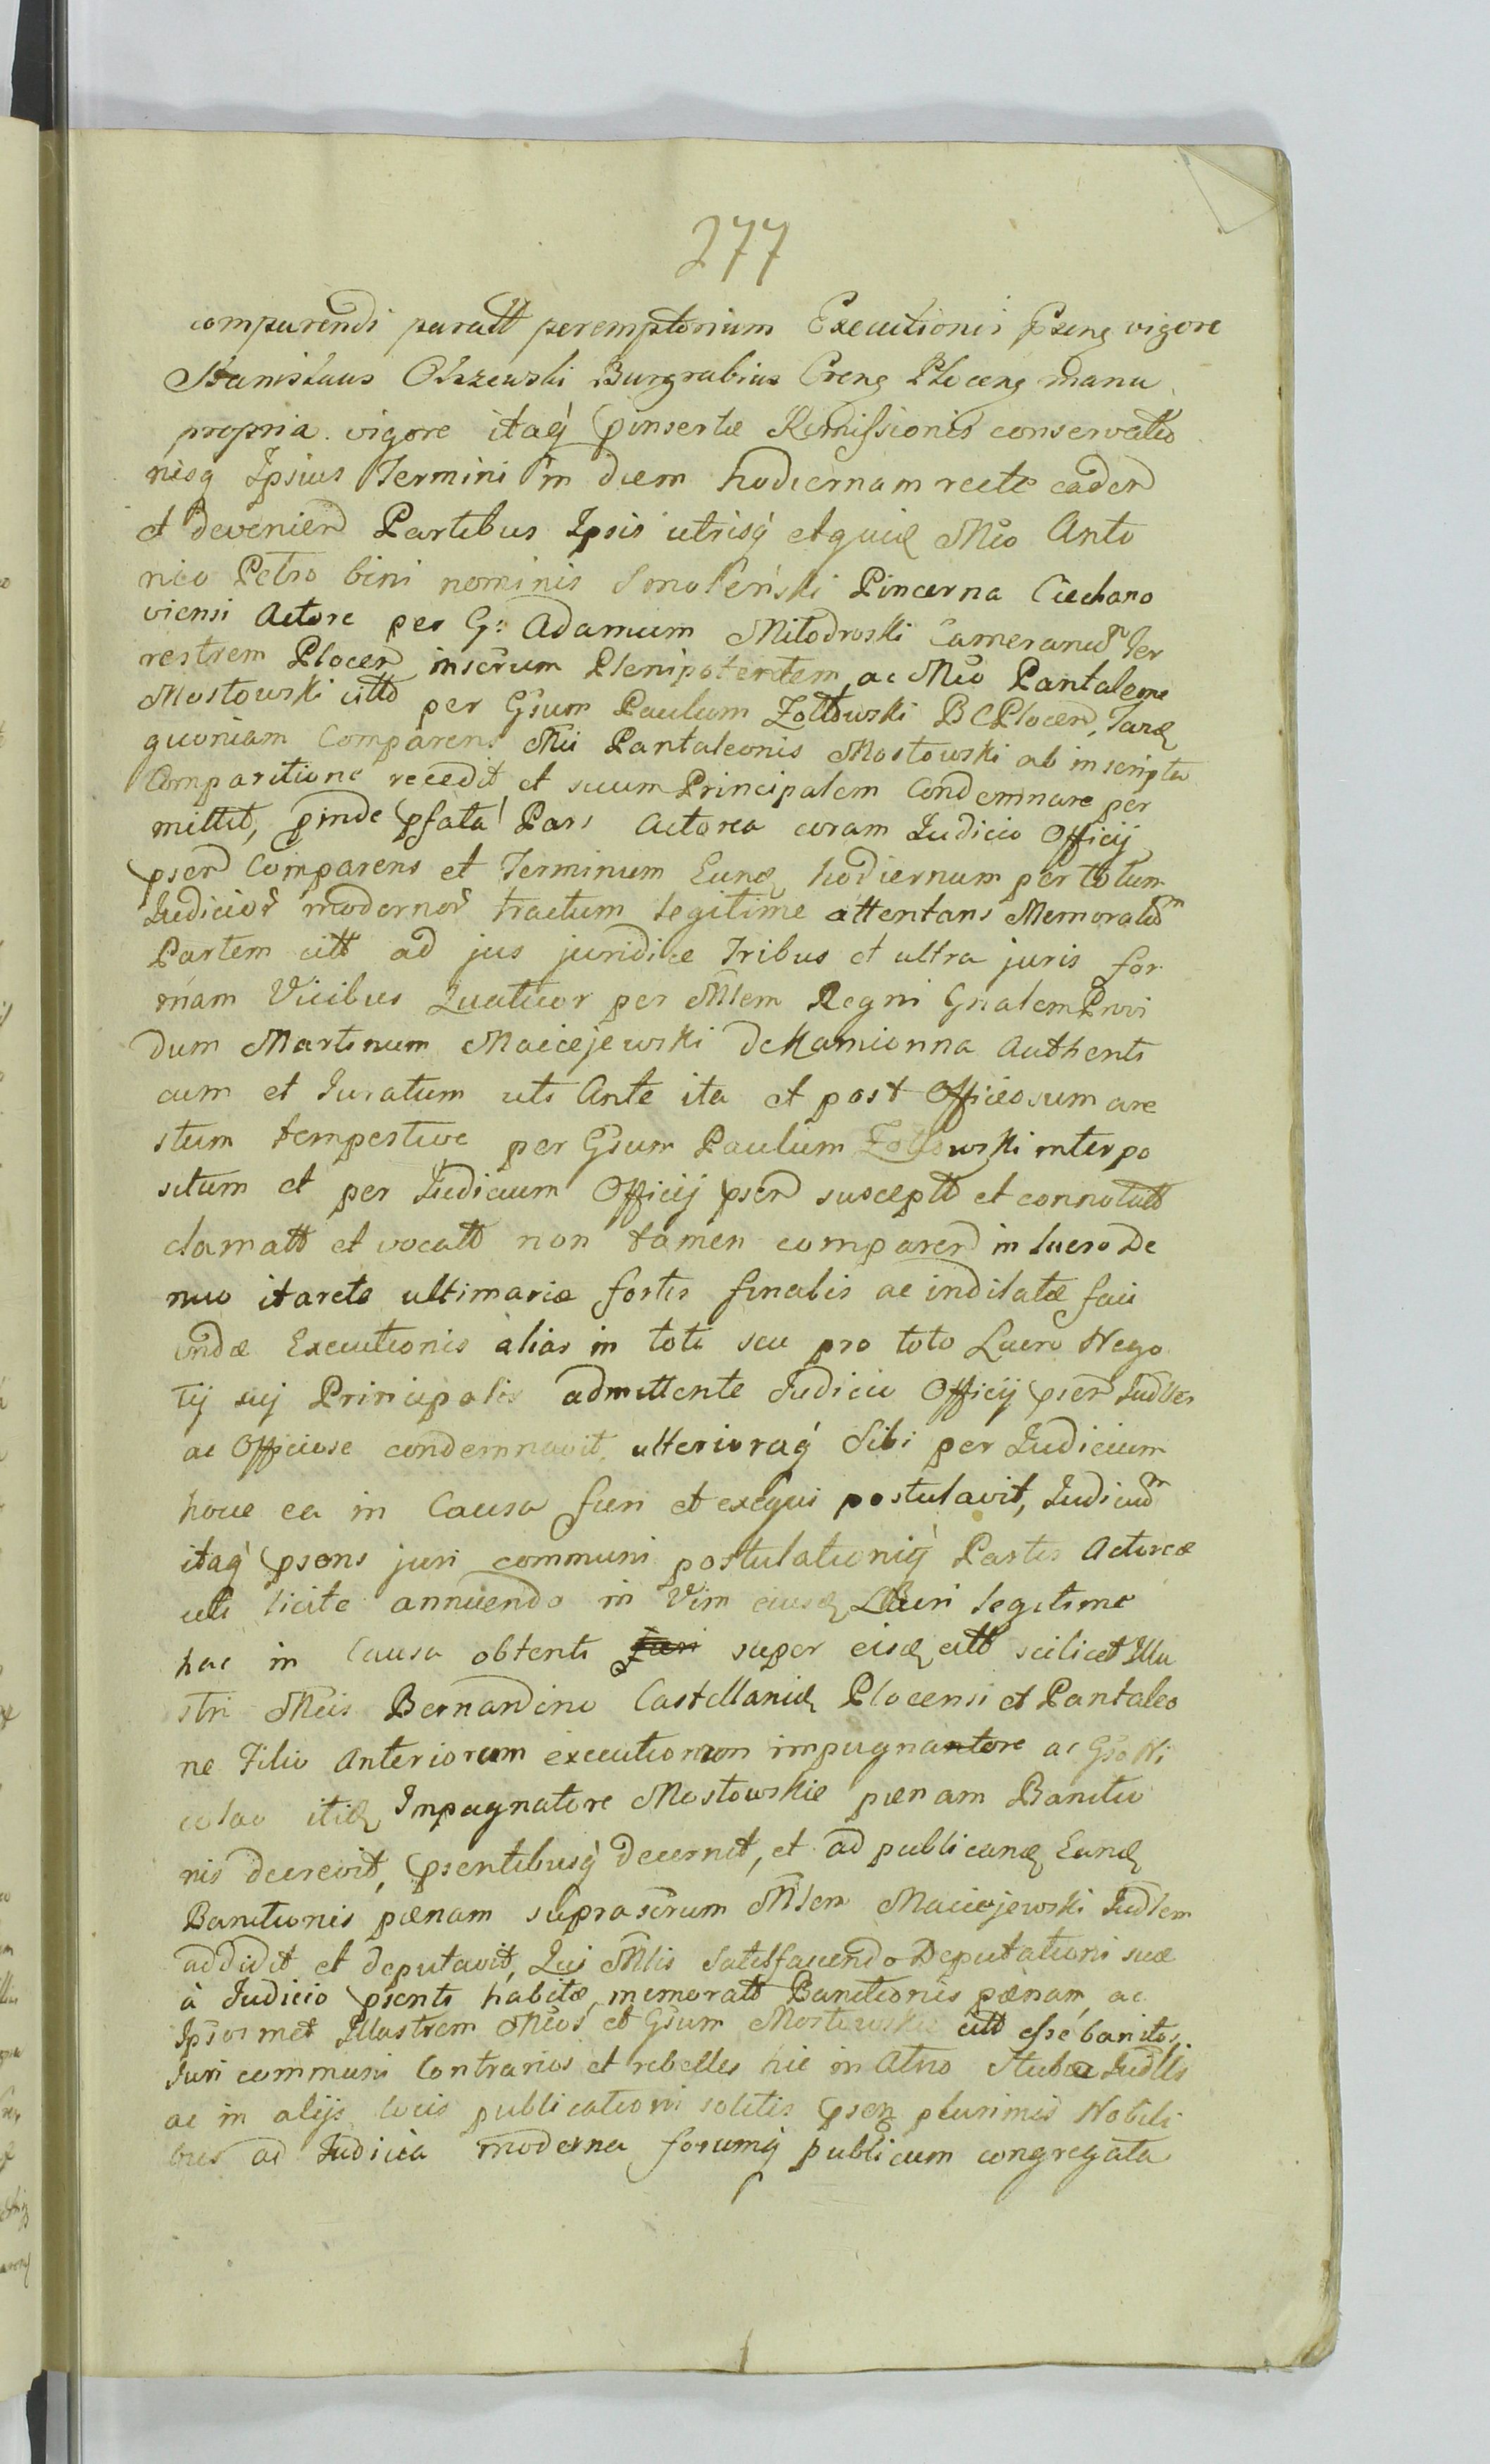 277
comparendi paratt peremptorium Executionis pseng vigore
Stanislaus Olszewski Burgrabius Creng Ploceng manu
propria. vigore itaq pinsertæ Remissionis conservatio
nisq Ipsius Termini in diem hodiernam recte caden
et devenien Partibus Ipsis utrisq et quid Mco Anto
nio Petro bini nominis Smoleński Pincerna Ciechano
viensi Actore per G: Adamum Miłodroski Cameranum Ter
restrem Plocen inserum Plenipotentem, ac Mco Pantaleone
Mostowski citto per Gsum Paulum Zołtowski B C Plocen, Tand
quoniam Comparens Mci Pantaleonis Mostowski ab inscripta
Comparitione recedit, et suum Principalem Condemnare per
mittit, pinde psata Pars Actorea coram Iudicio Officij
psen Comparens et Terminum Eund hodiernum per totum
Iudicior modernor tractum legitime attentans Memoratam
Partem citt ad jus juridice Tribus et ultra juris for
mam Vicibus Quatuor per Mlem Regni Gnalem Provi
dum Martinum Maciejewski de Kamionna Authenti
cum et Iuratum uti Ante ita et post Officiosum are
stum tempestive per Gsum Paulum Zołtowski interpo
situm et per Iudicium Officij psen susceptt et connotatt
clamatt et vocatt non tamen comparen in lucro De
nuo itarete ultimariæ fortis finalis ac indilatæ faci
endæ Executionis alias in toti seu pro toto Lucro Nego
tij sui Principalis admittente Iudicio Officij psen Iudlter
ac Officiose condemnavit, ulterioraq Sibi per Iudicium
hocce ea in Causa fieri et exequi postulavit, Iudicium
itaq psens juri communi postulationiq Partis Actoreæ
uti licite annuendo in Vim eiusd Lucri legitime
hac in Causa obtenti super eisd citt scilicet Illu
stri Mcis Bernardino Castellanid Plocensi et Pantaleo
ne Filio Anteriorum executionum impugnantore ac Gso Ni
colao itid Impugnatore Mostowskie pænam Banitio
nis decrevit, psentibusq decernit, et ad publicand Eand
Banitionis pænam suprascrum Mlem Maciejewski Iudlem
addidit et deputavit, Qui Mlis Satisfaciendo Deputationi suæ
à Iudicio psenti habitæ, memoratt Banitionis pænam, ac
Ipsosmet Illustrem Mcos et Gsum Mostowskie citt esse banitos,
Iuri communi Contrarios et rebelles hic in Atrio Stubæ Iudlis
ac in alijs locis publicationi solitis pseng plurimis Nobili
bus ad Iudicia moderna forumq publicum congregata